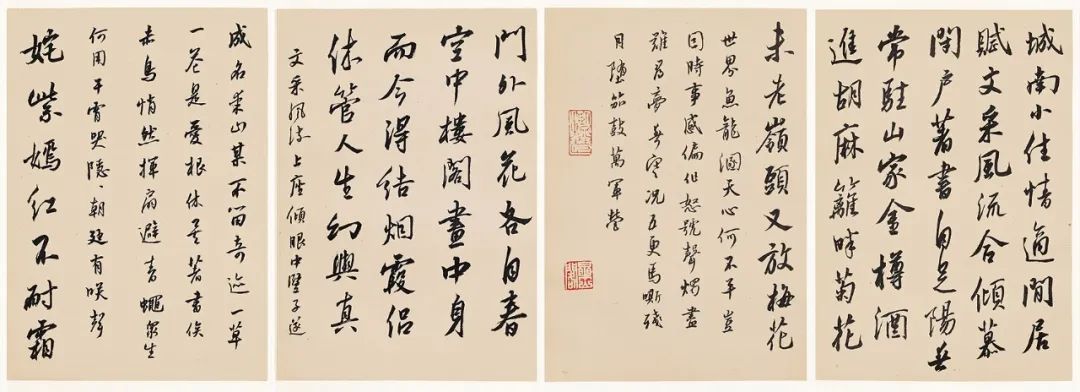 城南小住情適閒居
賦文采風流合傾慕
閉戶著書自足陽春
常駐山家金樽酒
進胡麻籬畔菊花
未老嶺頭又放梅花
世界魚龍溷天心何不平豈
因時事感偏作怒號聲燭盡
難為夢春寒況五更馬嘶殘
月墮笳鼓萬軍營
門外風花各自春
空中樓閣畫中身
而今得結烟霞侶
休管人生幻與真
文采風流上座傾眼中豎子遂
成名某山某水留奇迹一草
一花是愛根休矣著書俟
赤鳥悄然揮扇避青蠅眾生
何用干霄哭隱、朝廷有咲聲
姹紫嫣紅不耐霜